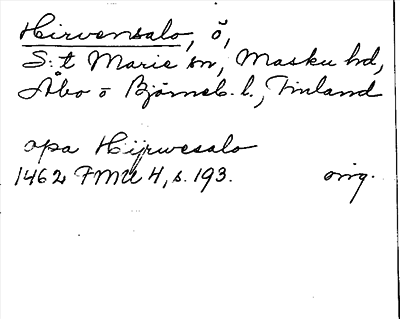 Hirvensalo, ö,
S:t Marie sn, Masku hd,
Åbo o Björneb. l., Finland
opa Hijrwesalo
1462 FMU 4, s. 193. orig.